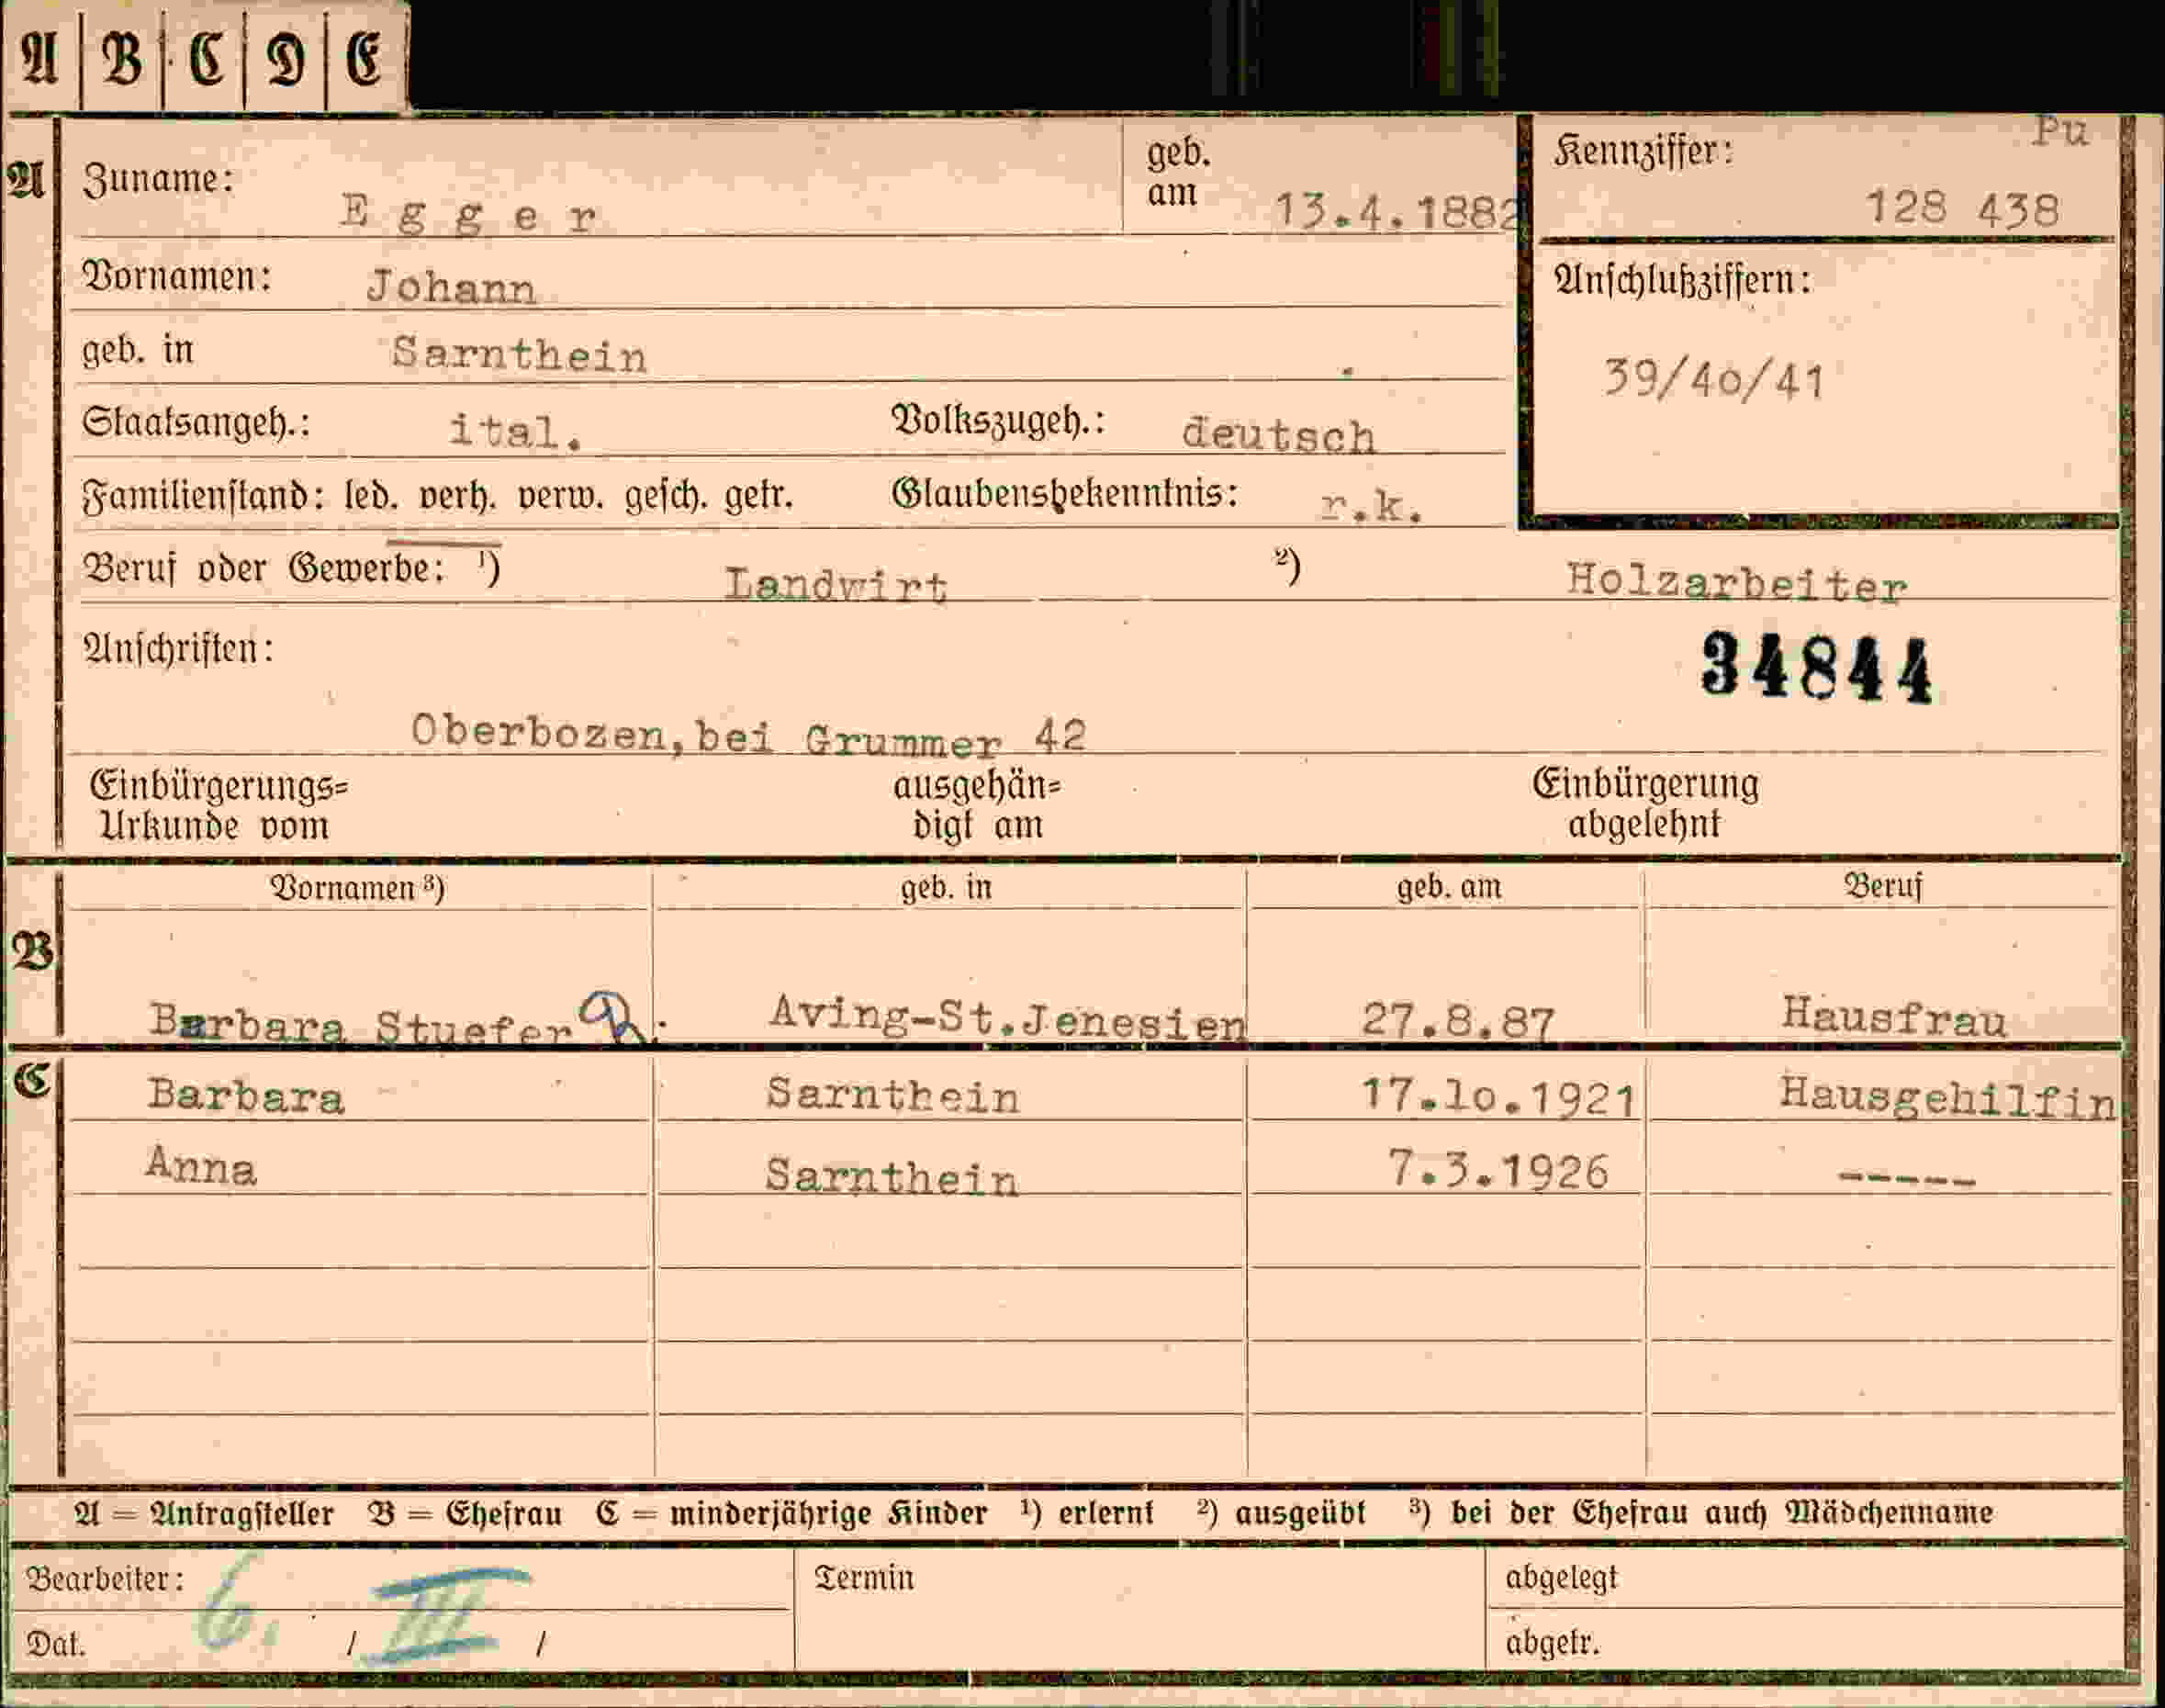 A B C D E
Pu
A Zuname: Egger geb. am 13.4.1882 Kennziffer: 128 438
Vornamen: Johann Anschlußziffern:
geb. in Sarnthein 39/40/41
Staatsangeh.: ital. Volkszugeh.: deutsch
Familienstand: led. verh. verw. gesch. getr. Glaubensbekenntnis: r.k.
Beruf oder Gewerbe: 1) Landwirt 2) Holzarbeiter
Anschriften: 34844
Oberbozen, bei Grummer 42
Einbürgerungs= ausgehän= Einbürgerung
Urkunde vom digt am abgelehnt
Vornamen 3) geb. in geb. am Beruf
B
Barbara Stuefer Aving-St.Jenesien 27.8.87 Hausfrau
C Barbara Sarnthein 17.10.1921 Hausgehilfin
Anna Sarnthein 7.3.1926 -----
A = Antragsteller B = Ehefrau C = minderjährige Kinder 1) erlernt 2) ausgeübt 3) bei der Ehefrau auch Mädchenname
Bearbeiter: Termin abgelegt
Dat. 6. / III / abgetr.